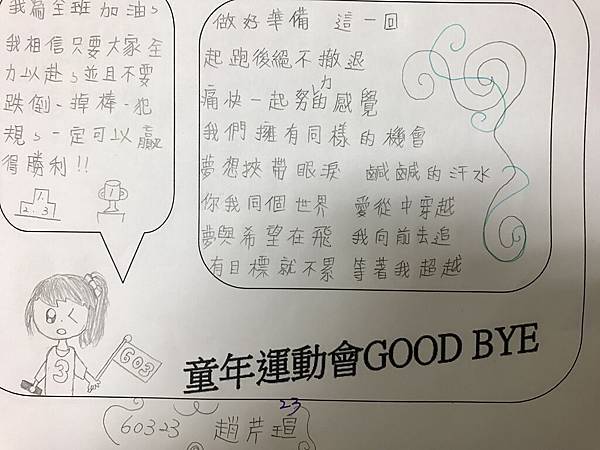 我為全班加油，
我相信只要大家全
力以赴，並且不要
跌倒、掉棒、犯
規，一定可以贏
得勝利!!
1
2.3
1
做好準備 這一回
起跑後絕不撤退
痛快一起努力的感覺
我們擁有同樣的機會
夢想挾帶眼淚 鹹鹹的汗水
你我同個世界 愛從中穿越
夢與希望在飛 我向前去追
有目標就不累 等著我超越
603
3
童年運動會GOOD BYE
23
60323 趙芹瑄